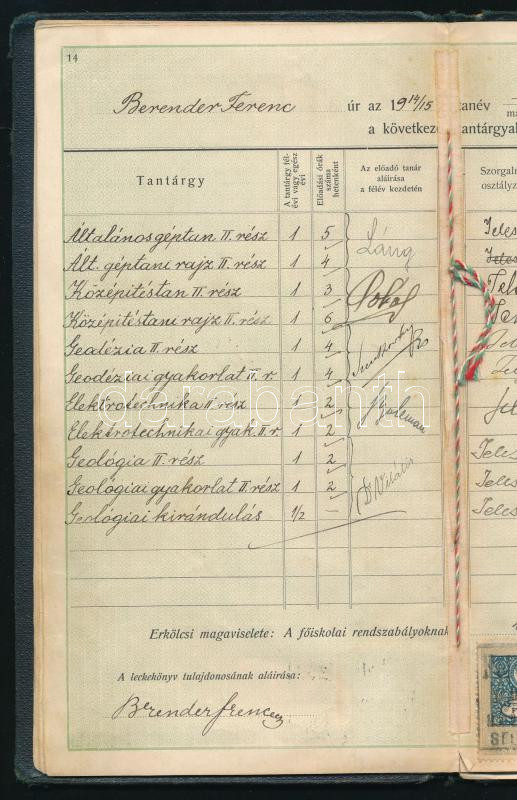 14
Berender Ferenc úr az 1914/15 tanév
a következő antárgyak
Tantárgy
A tantárgy fél-
évi vagy egész
évi
Előadási órák
száma
hetenként
Az előadó tanár
aláírása
a félév kezdetén
Szorgalm
osztályz
Általános géptan II. rész 1 5 Láng Jeles
Ált. géptani rajz II. rész 1 4 Jeles
Középítéstan II. rész 1 3
Középítéstani rajz II. rész 1 6
Geodézia II. rész 1 4
Geodéziai gyakorlat II. r. 1 4
Elektrotechnika II. rész 1 2
Elektrotechnikai gyak. II. r. 1 2
Geológia II. rész 1 2 Dr Vitális Jeles
Geológiai gyakorlat II. rész 1 2 Jeles
Geológiai kirándulás 1/2 — Jeles
darabanth
Erkölcsi magaviselete: A főiskolai rendszabályoknak
A leckekönyv tulajdonosának aláírása:
Berender Ferenc